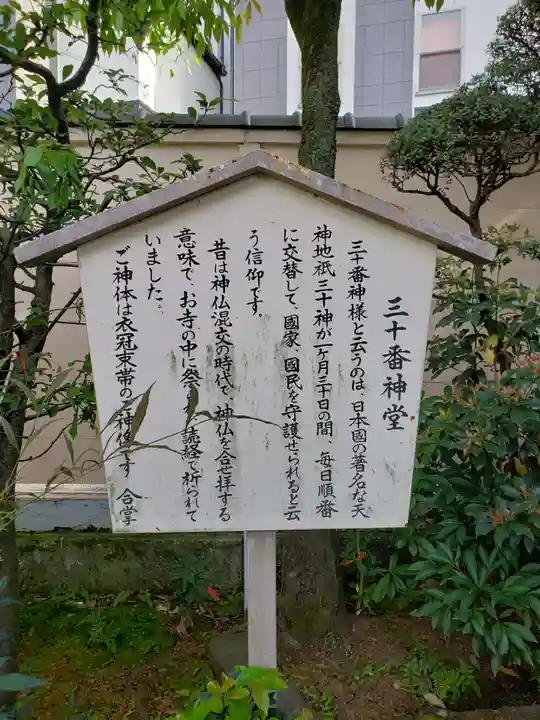 三十番神堂
三十番神様と云うのは、日本國の著名な天
神地祇三十神が一ヶ月三十日の間、毎日順番
に交替して、國家、國民を守護せられると云
う信仰です。
昔は神仏混交の時代で、神仏を合せ拝する
意味で、お寺の中に祭 読経で祈られて
いました。
ご神体は衣冠束帯の 神像です 合掌